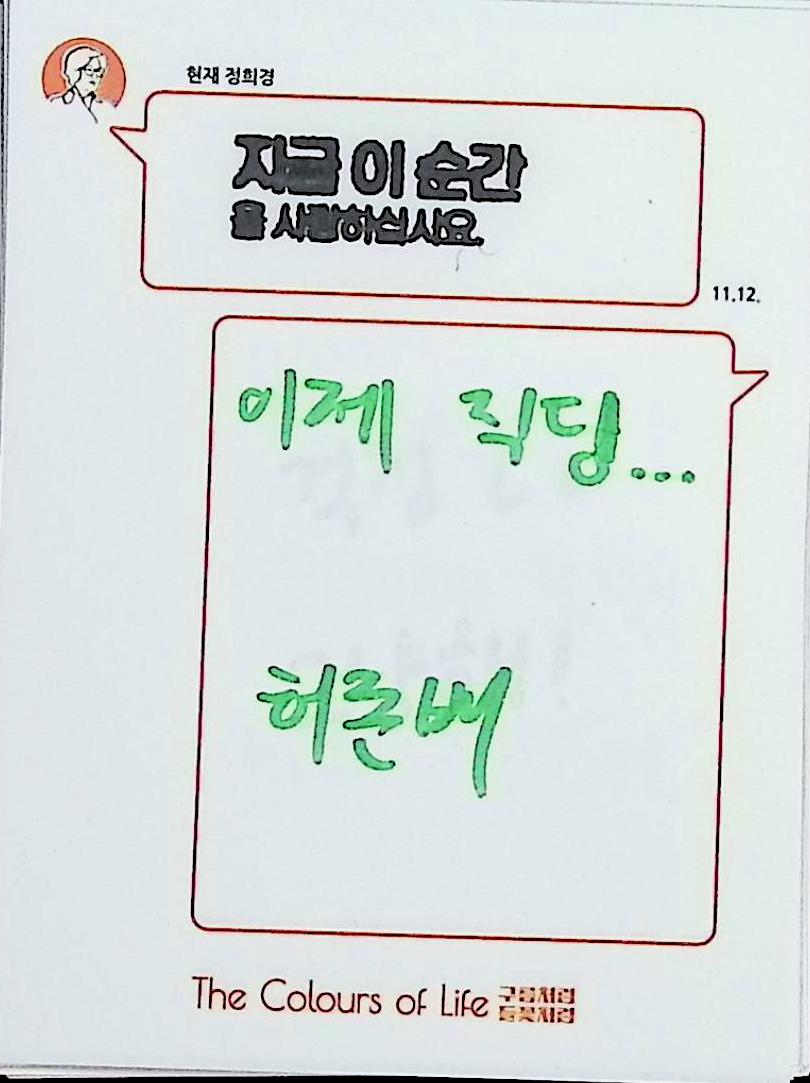 현재 정희경
지금 이 순간
을 사랑하십시요.
11.12.
이제 직딩...
허준배
The Colours of Life 구름처럼
들꽃처럼